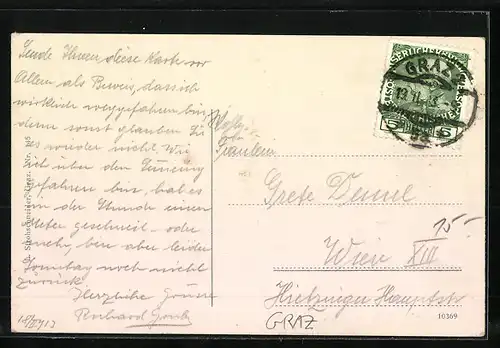 Sende Ihnen diese Karte vor
Allem als Beweis, dass ich
wirklich weggefahren bin
denn sonst glauben Sie
es wieder nicht. Wie
ich über den Semmering
gefahren bin, hat es
in der Stunde einen
Meter geschneit oder
mehr, bin aber leider
Sonntag noch nicht
zurück
Herzliche Grüsse
GRAZ
Fräulein
Grete Demel
Wien XIII
Hietzinger Hauptstr
15-
10369
GRAZ
5 5